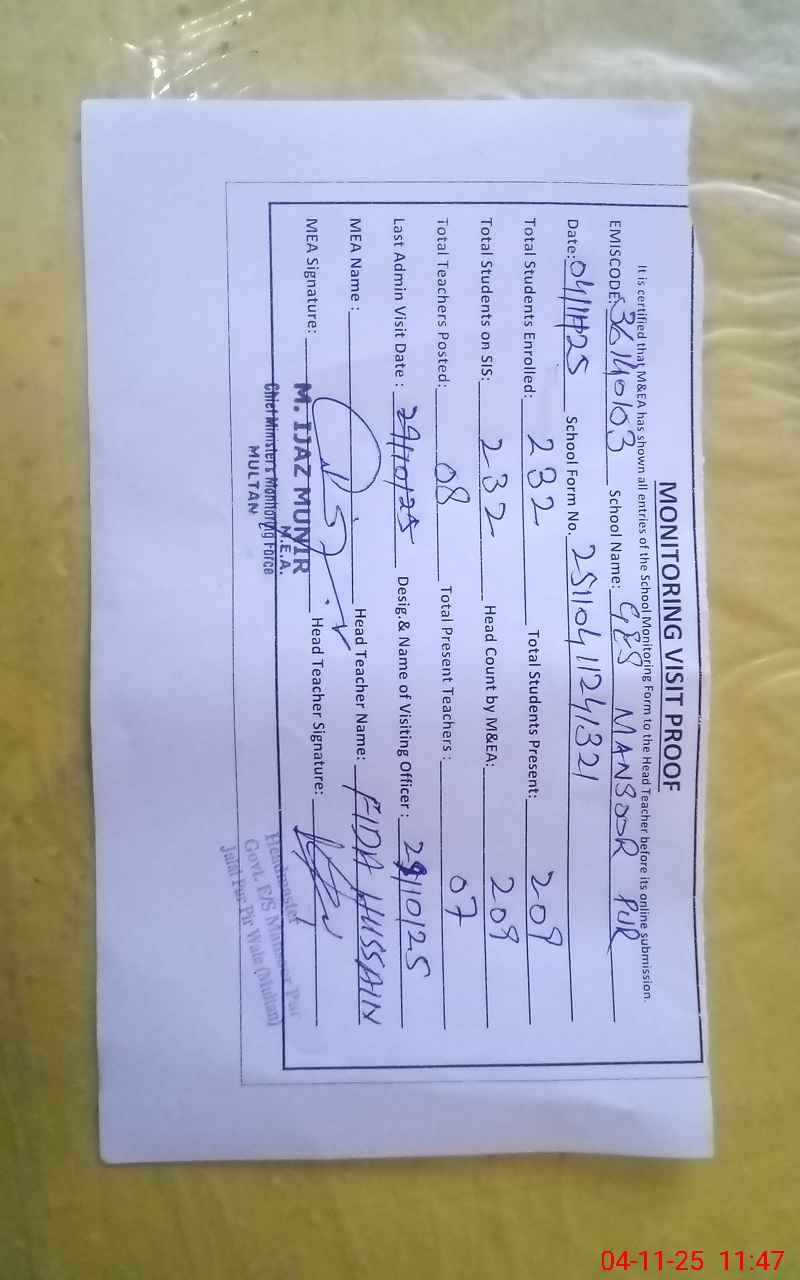 MONITORING VISIT PROOF
It is certified that M&EA has shown all entries of the School Monitoring Form to the Head Teacher before its online submission.
EMISCODE: 36140103 School Name: GES MANSOOR PUR
Date: 04/11/25 School Form No. 25110411241321
Total Students Enrolled: 232 Total Students Present: 209
Total Students on SIS: 232 Head Count by M&EA: 209
Total Teachers Posted: 08 Total Present Teachers : 07
Last Admin Visit Date : 29/10/25 Desig.& Name of Visiting Officer : 29/10/25
MEA Name : Head Teacher Name: FIDA HUSSAIN
MEA Signature: Head Teacher Signature:
M. IJAZ MUNIR
M.E.A.
Chief Minister's Monitoring Force
MULTAN
Headmaster
Govt. E/S Mansoor Pur
Jalal Pur Pir Wala (Multan)
04-11-25 11:47